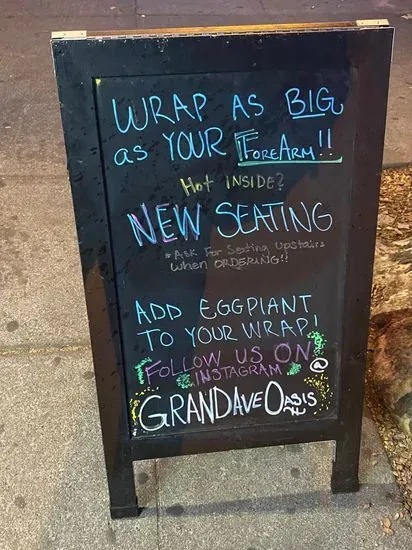 WRAP AS BIG
as YOUR FOREARM!!
Hot INSIDE?
NEW SEATING
* Ask For Seating Upstairs
when ORDERING!!
ADD EGGPIANT
TO YOUR WRAP!
FOLLOW US ON
INSTAGRAM @
GRANDAVEOASIS